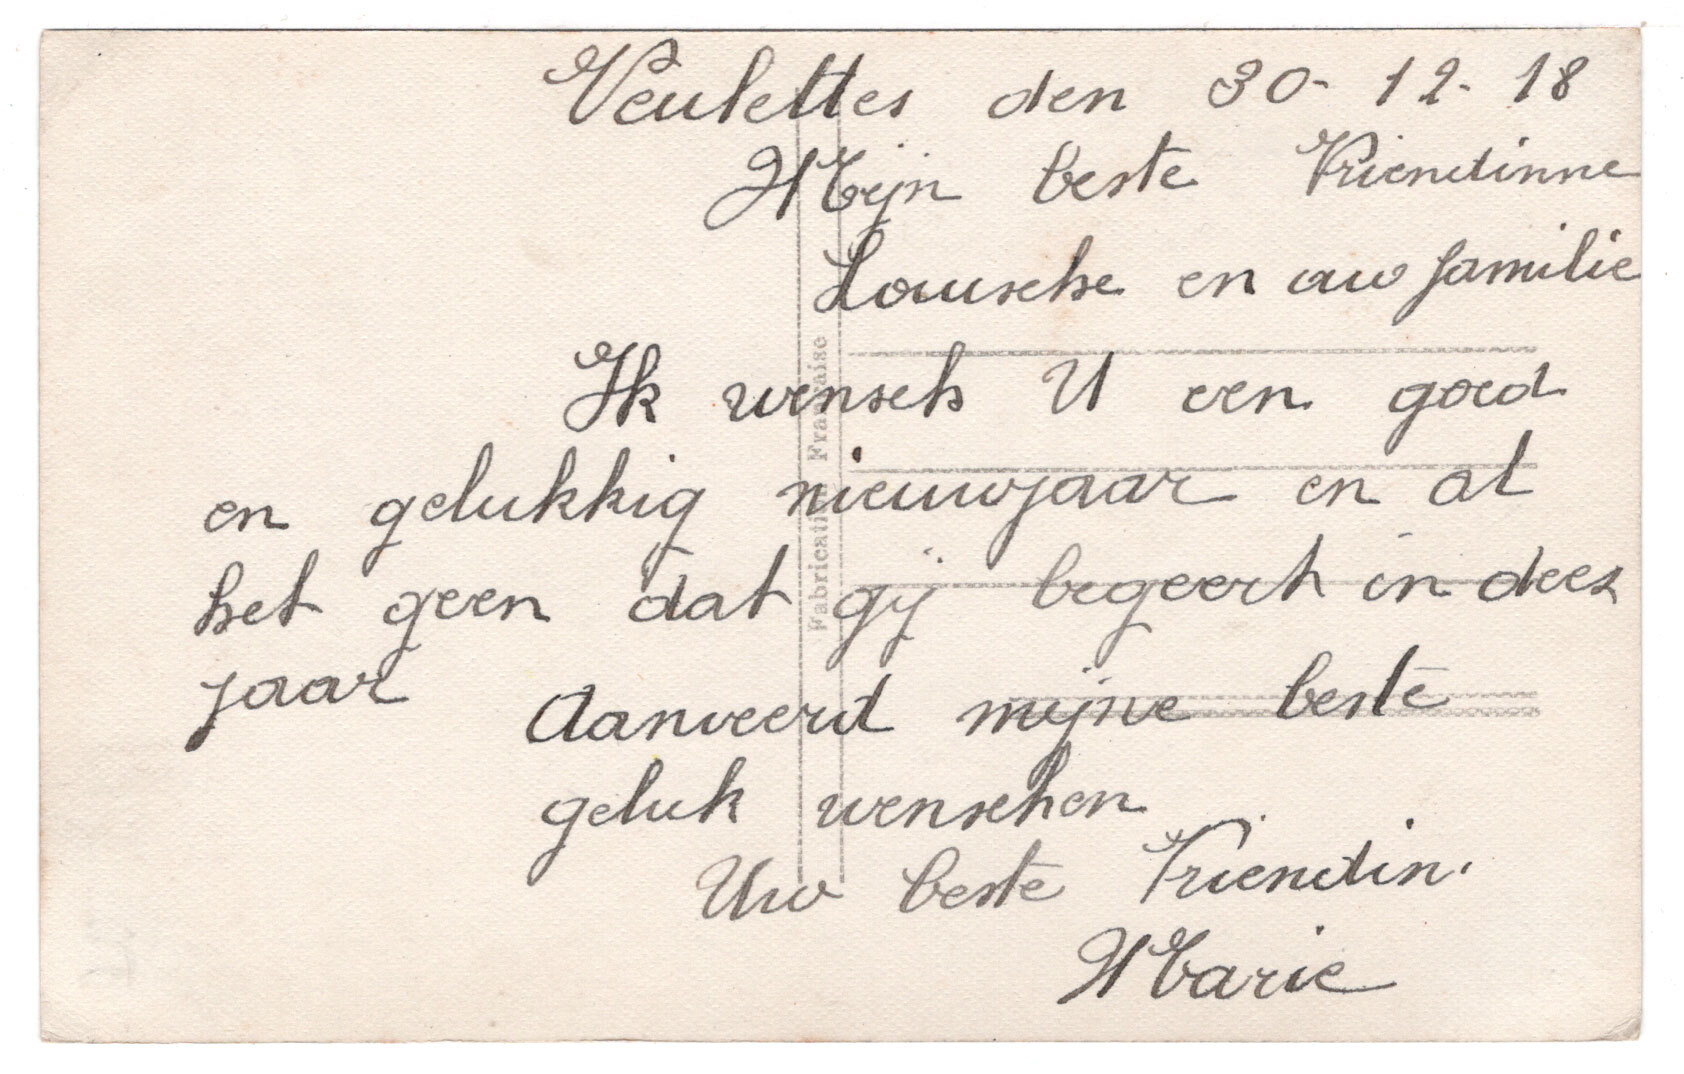 Veulettes den 30-12-18
Mijn beste Vriendinne
Louische en uw familie
Ik wensch U een goed
en gelukkig nieuwjaar en al
het geen dat gij begeert in dees
jaar
Aanveerd mijne beste
geluk wenschen
Uw beste Vriendin.
Marie
Fabrication Française